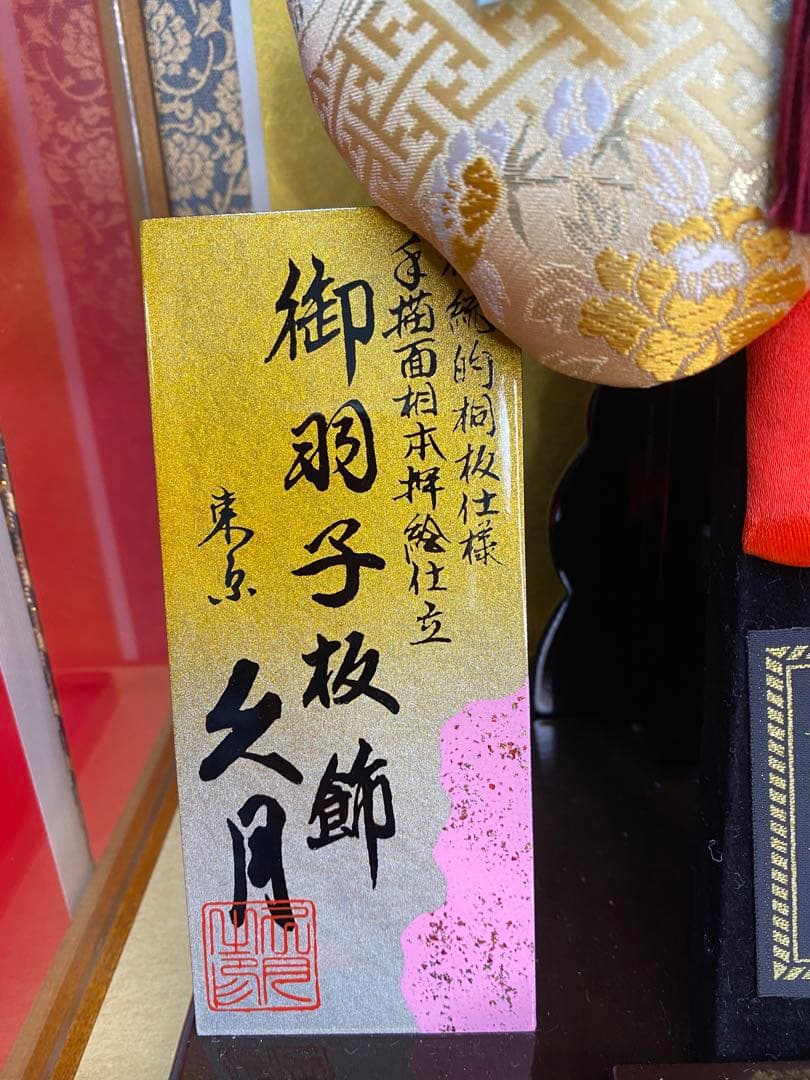 伝統的桐板仕様
手描面相本押絵仕立
御羽子板飾
東京
久月